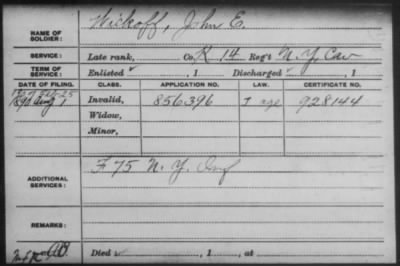 NAME OF SOLDIER: Wickoff, John E.
SERVICE: Late rank, Co. K 14 Reg't N.Y. Cav
TERM OF SERVICE: Enlisted , 1 Discharged , 1
DATE OF FILING. CLASS. APPLICATION NO. LAW. CERTIFICATE NO.
1890 Aug 1 Invalid, 856396 928144
Widow,
Minor,
ADDITIONAL SERVICES: F 75 N.Y. Inf
REMARKS:
Died , 1 , at